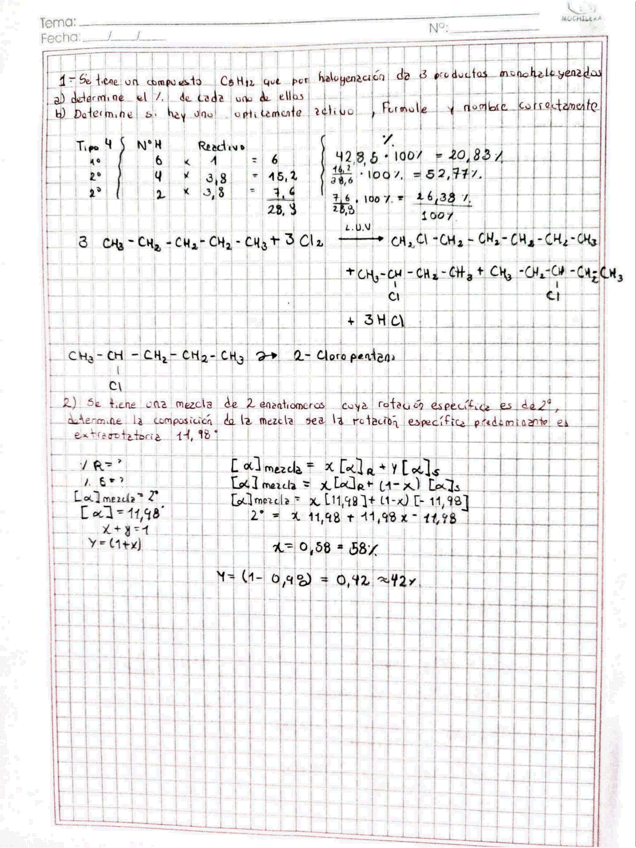 Tema:
Nº:
MOCHILERA
Fecha: / /
1.- Se tiene un compuesto C5H12 que por halogenación da 3 productos monohalogenados
a) determine el % de cada uno de ellos
b) Determine si hay uno opticamente activo, Formule y nombre correctamente
Tipo 4 NºH Reactivo %
1º 6 x 1 = 6
2º 4 x 3,8 = 15,2
2º 2 x 3,8 = 7,6
28,8
42,8,6 · 100% = 20,83%
15,2/28,6 · 100% = 52,77%
7,6/28,8 · 100% = 26,38%
100%
3 CH3-CH2-CH2-CH2-CH3 + 3Cl2 L.U.V → CH2Cl-CH2-CH2-CH2-CH2-CH3
+ CH3-CH-CH2-CH3 + CH3-CH2-CH-CH2-CH3
Cl Cl
+ 3HCl
CH3-CH-CH2-CH2-CH3 → 2-Cloropentano
Cl
2) Se tiene una mezcla de 2 enantiomeros cuya rotación específica es de 2º,
determine la composición de la mezcla sea la rotación específica predominante es
11,98º
% R = ?
% S = ?
[α]mezcla = 2º
[α] = 11,98º
x + y = 1
Y = (1+x)
[α]mezcla = x[α]R + y[α]S
[α]mezcla = x[α]R + (1-x)[α]S
[α]mezcla = x[11,98] + (1-x)[-11,98]
2º = x 11,98 + 11,98x - 11,98
x = 0,58 = 58%
Y = (1- 0,98) = 0,42 ≈ 42%